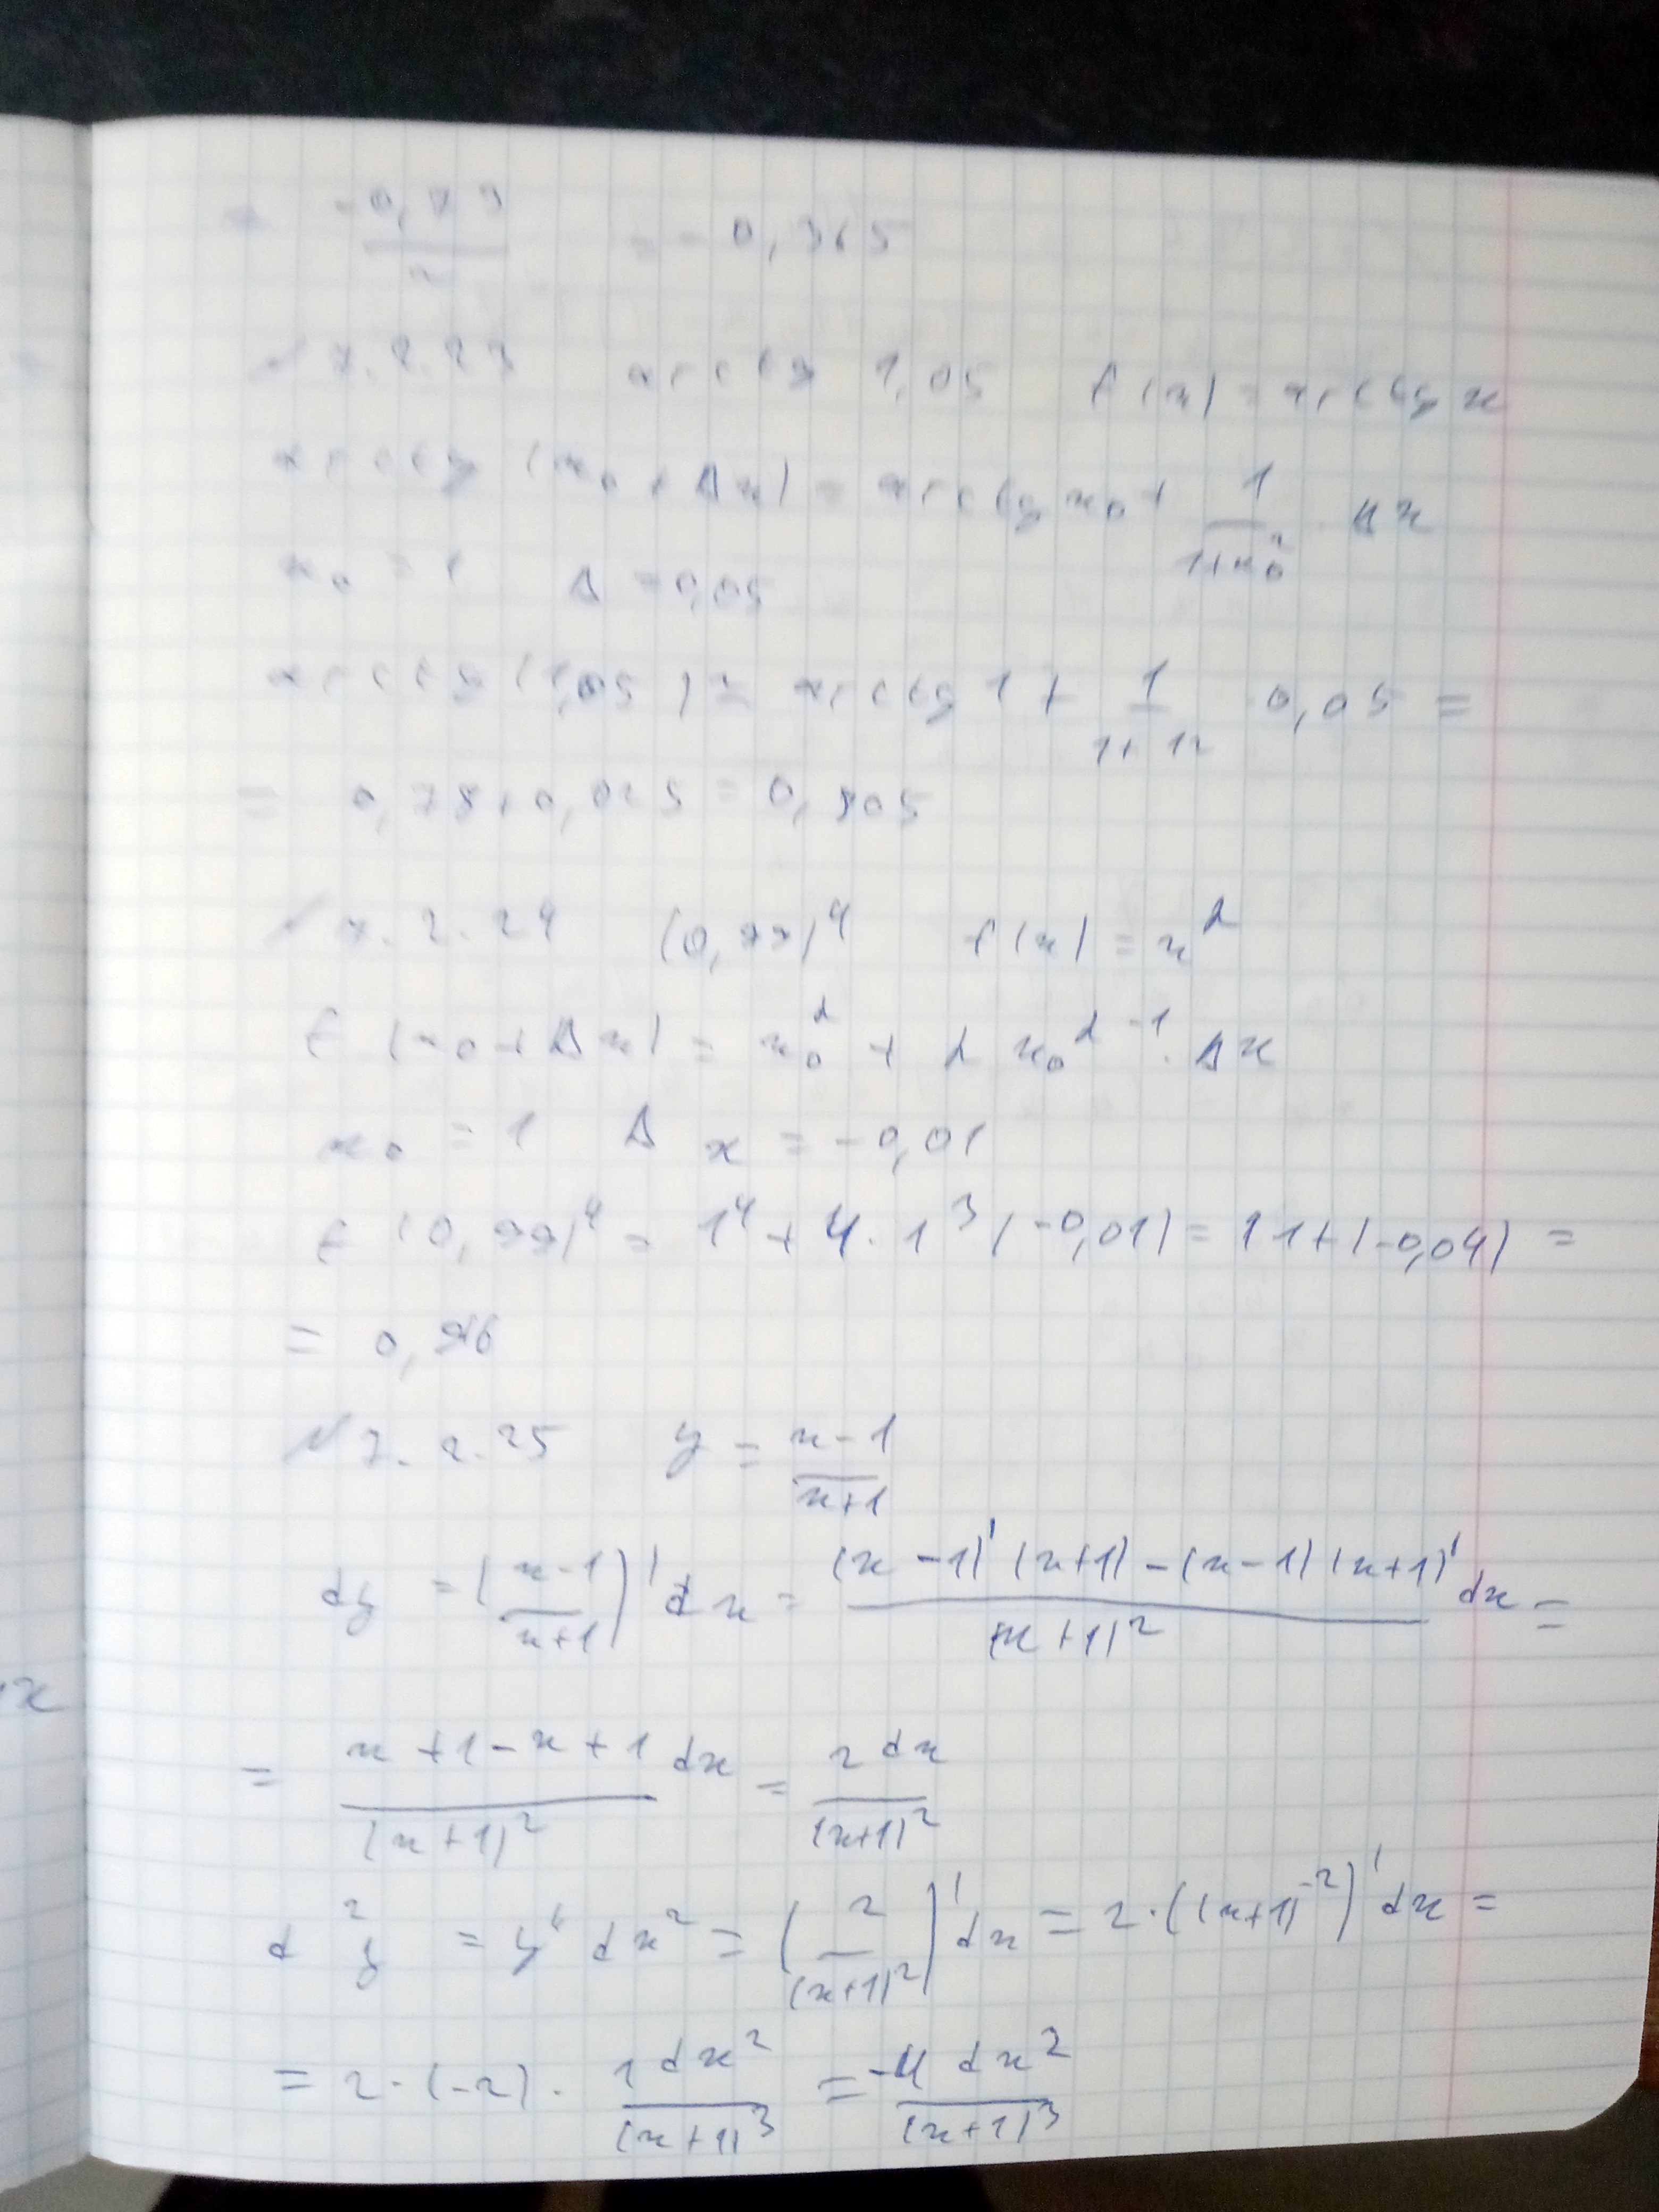 = -0,73/2 = -0,365
№ 7.2.23 arctg 1,05 f(x) = arctg x
arctg (x₀ + Δx) = arctg x₀ + 1/(1+x₀²) · Δx
x₀ = 1 Δ = 0,05
arctg (1,05) = arctg 1 + 1/(1+1²) · 0,05 =
= 0,78 + 0,025 = 0,805
№ 7.2.24 (0,99)⁴ f(x) = x^α
f(x₀ + Δx) = x₀^α + α x₀^(α-1) · Δx
x₀ = 1 Δx = -0,01
f(0,99)⁴ = 1⁴ + 4 · 1³ (-0,01) = 1 1 + (-0,04) =
= 0,96
№ 7.2.25 y = (x-1)/(x+1)
dy = ((x-1)/(x+1))' dx = ((x-1)'(x+1) - (x-1)(x+1)')/(x+1)² dx =
= (x+1-x+1)/(x+1)² dx = 2dx/(x+1)²
d²y = y'' dx² = (2/(x+1)²)' dx = 2 · ((x+1)⁻²)' dx =
= 2 · (-2) · 1dx²/(x+1)³ = -4dx²/(x+1)³
x